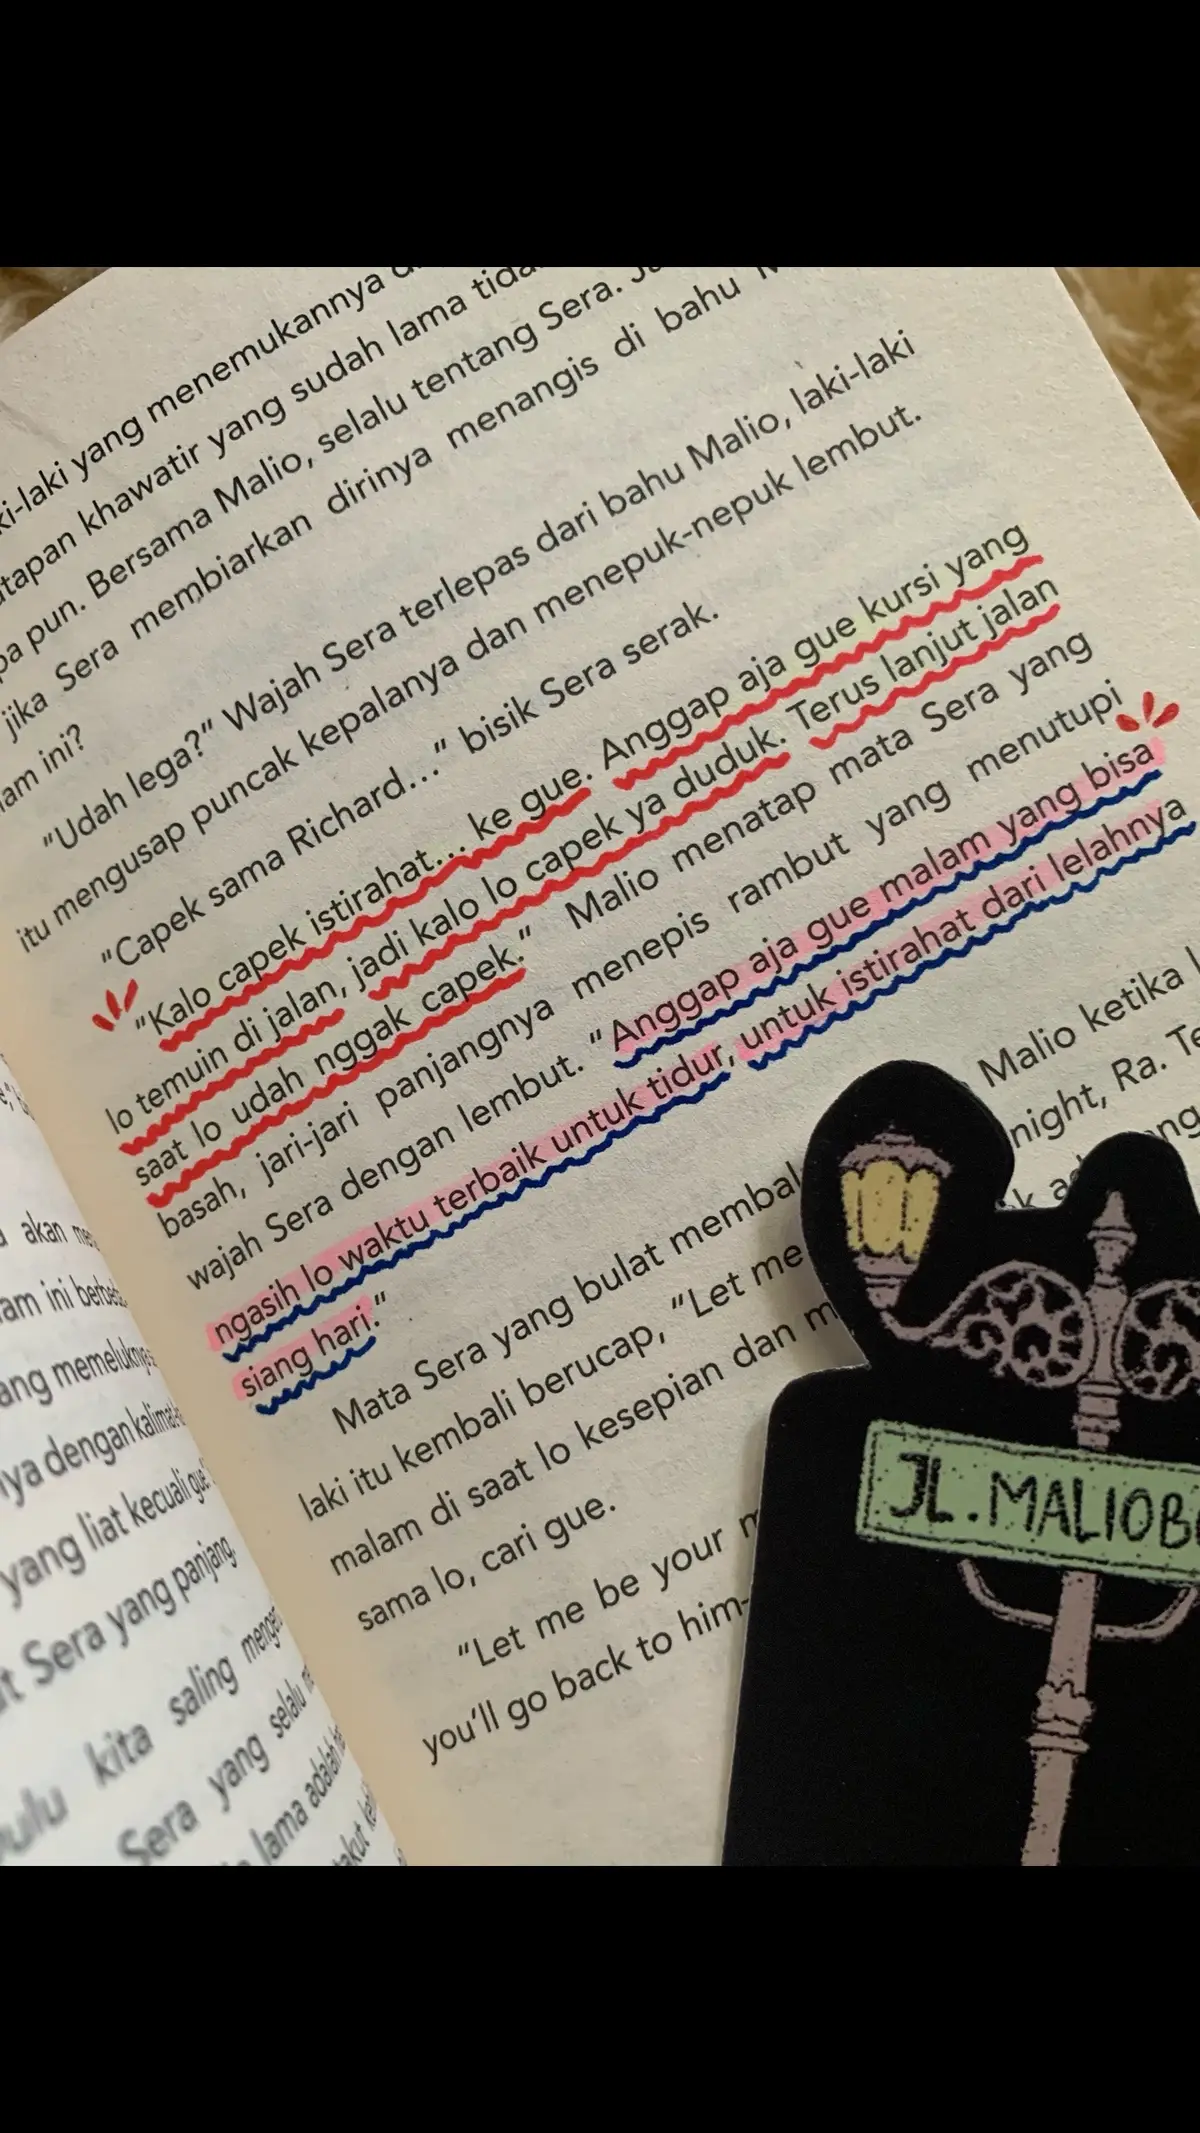 yang menemukannya
khawatir yang sudah lama
pun. Bersama Malio, selalu tentang Sera.
jika Sera membiarkan dirinya menangis di bahu
ini?
"Udah lega?" Wajah Sera terlepas dari bahu Malio, laki-laki
itu mengusap puncak kepalanya dan menepuk-nepuk lembut.
"Capek sama Richard..." bisik Sera serak.
"Kalo capek istirahat... ke gue. Anggap aja gue kursi yang
lo temuin di jalan, jadi kalo lo capek ya duduk. Terus lanjut jalan
saat lo udah nggak capek." Malio menatap mata Sera yang
basah, jari-jari panjangnya menepis rambut yang menutupi
wajah Sera dengan lembut. "Anggap aja gue malam yang bisa
ngasih lo waktu terbaik untuk tidur, untuk istirahat dari lelahnya
siang hari."
Mata Sera yang bulat Malio ketika
laki itu kembali berucap, "Let me night, Ra.
malam di saat lo kesepian dan
sama lo, cari gue.
"Let me be your
you'll go back to him-
akan
ini
yang liat kecuali gue
Sera yang panjang.
kita saling
Sera yang selalu
lama adalah
JL.